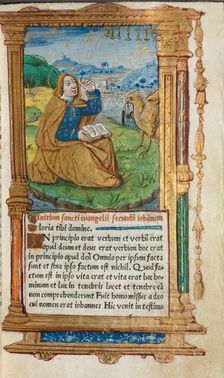 Initium sancti euangelii secundū iohānem
Gloria tibi domine.
In principio erat verbum et verbū erat
apud deum et deus erat verbum hoc erat
in principio apud deū Omnia per ipsum facta
sunt et sine ipso factum est nichil Quod fac
tum est in ipso vita erat et vita erat lux ho
minum et lux in tenebris lucet et tenebre
eam non comprehenderunt Fuit homo missus a deo
cui nomen erat iohannes Hic venit in testimo